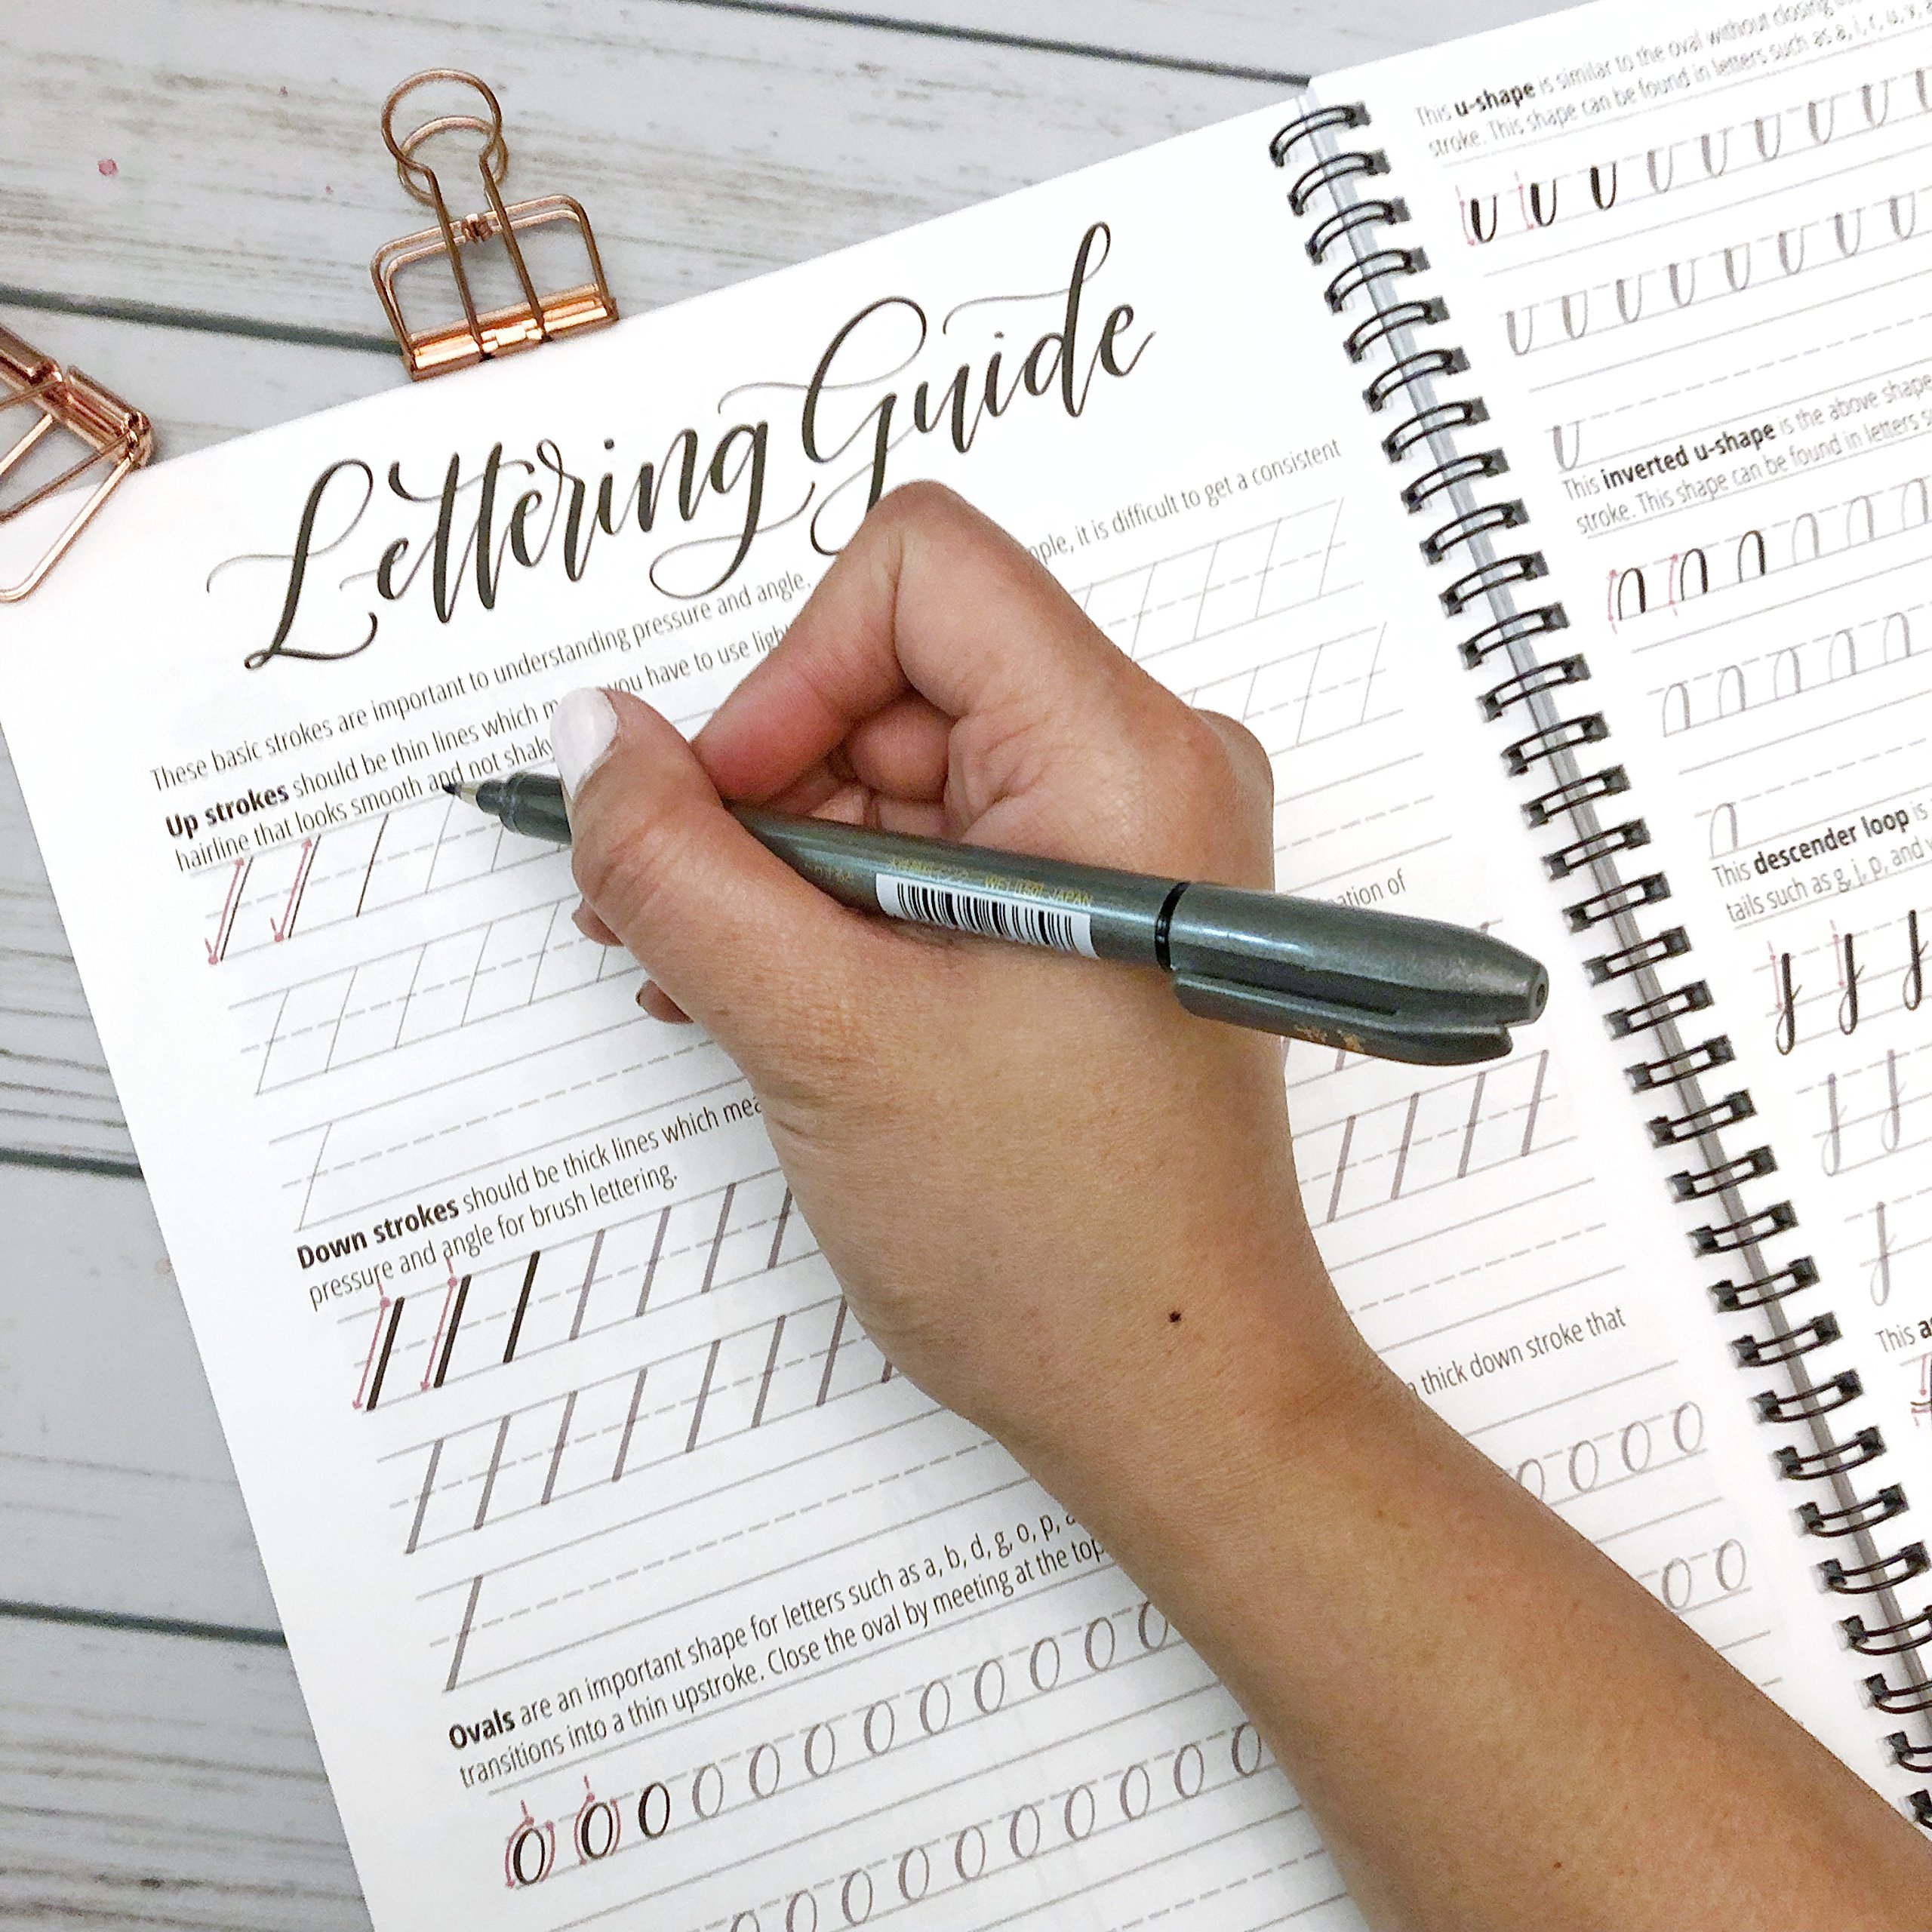 Lettering Guide
These basic strokes are important to understanding pressure and angle.
Up strokes should be thin lines which you have to use it is difficult to get a consistent
hairline that looks smooth and not
Down strokes should be thick lines which of
pressure and angle for brush lettering.
Ovals are an important shape for letters such as a, b, d, g, o, p, thick down stroke that
transitions into a thin upstroke. Close the oval by meeting at the top
JAPAN
This u-shape is similar to the oval without closing
stroke. This shape can be found in letters such as a, i, r, u, v,
This inverted u-shape is the above shape
stroke. This shape can be found in letters
This descender loop is
tails such as g, j, p, and
This